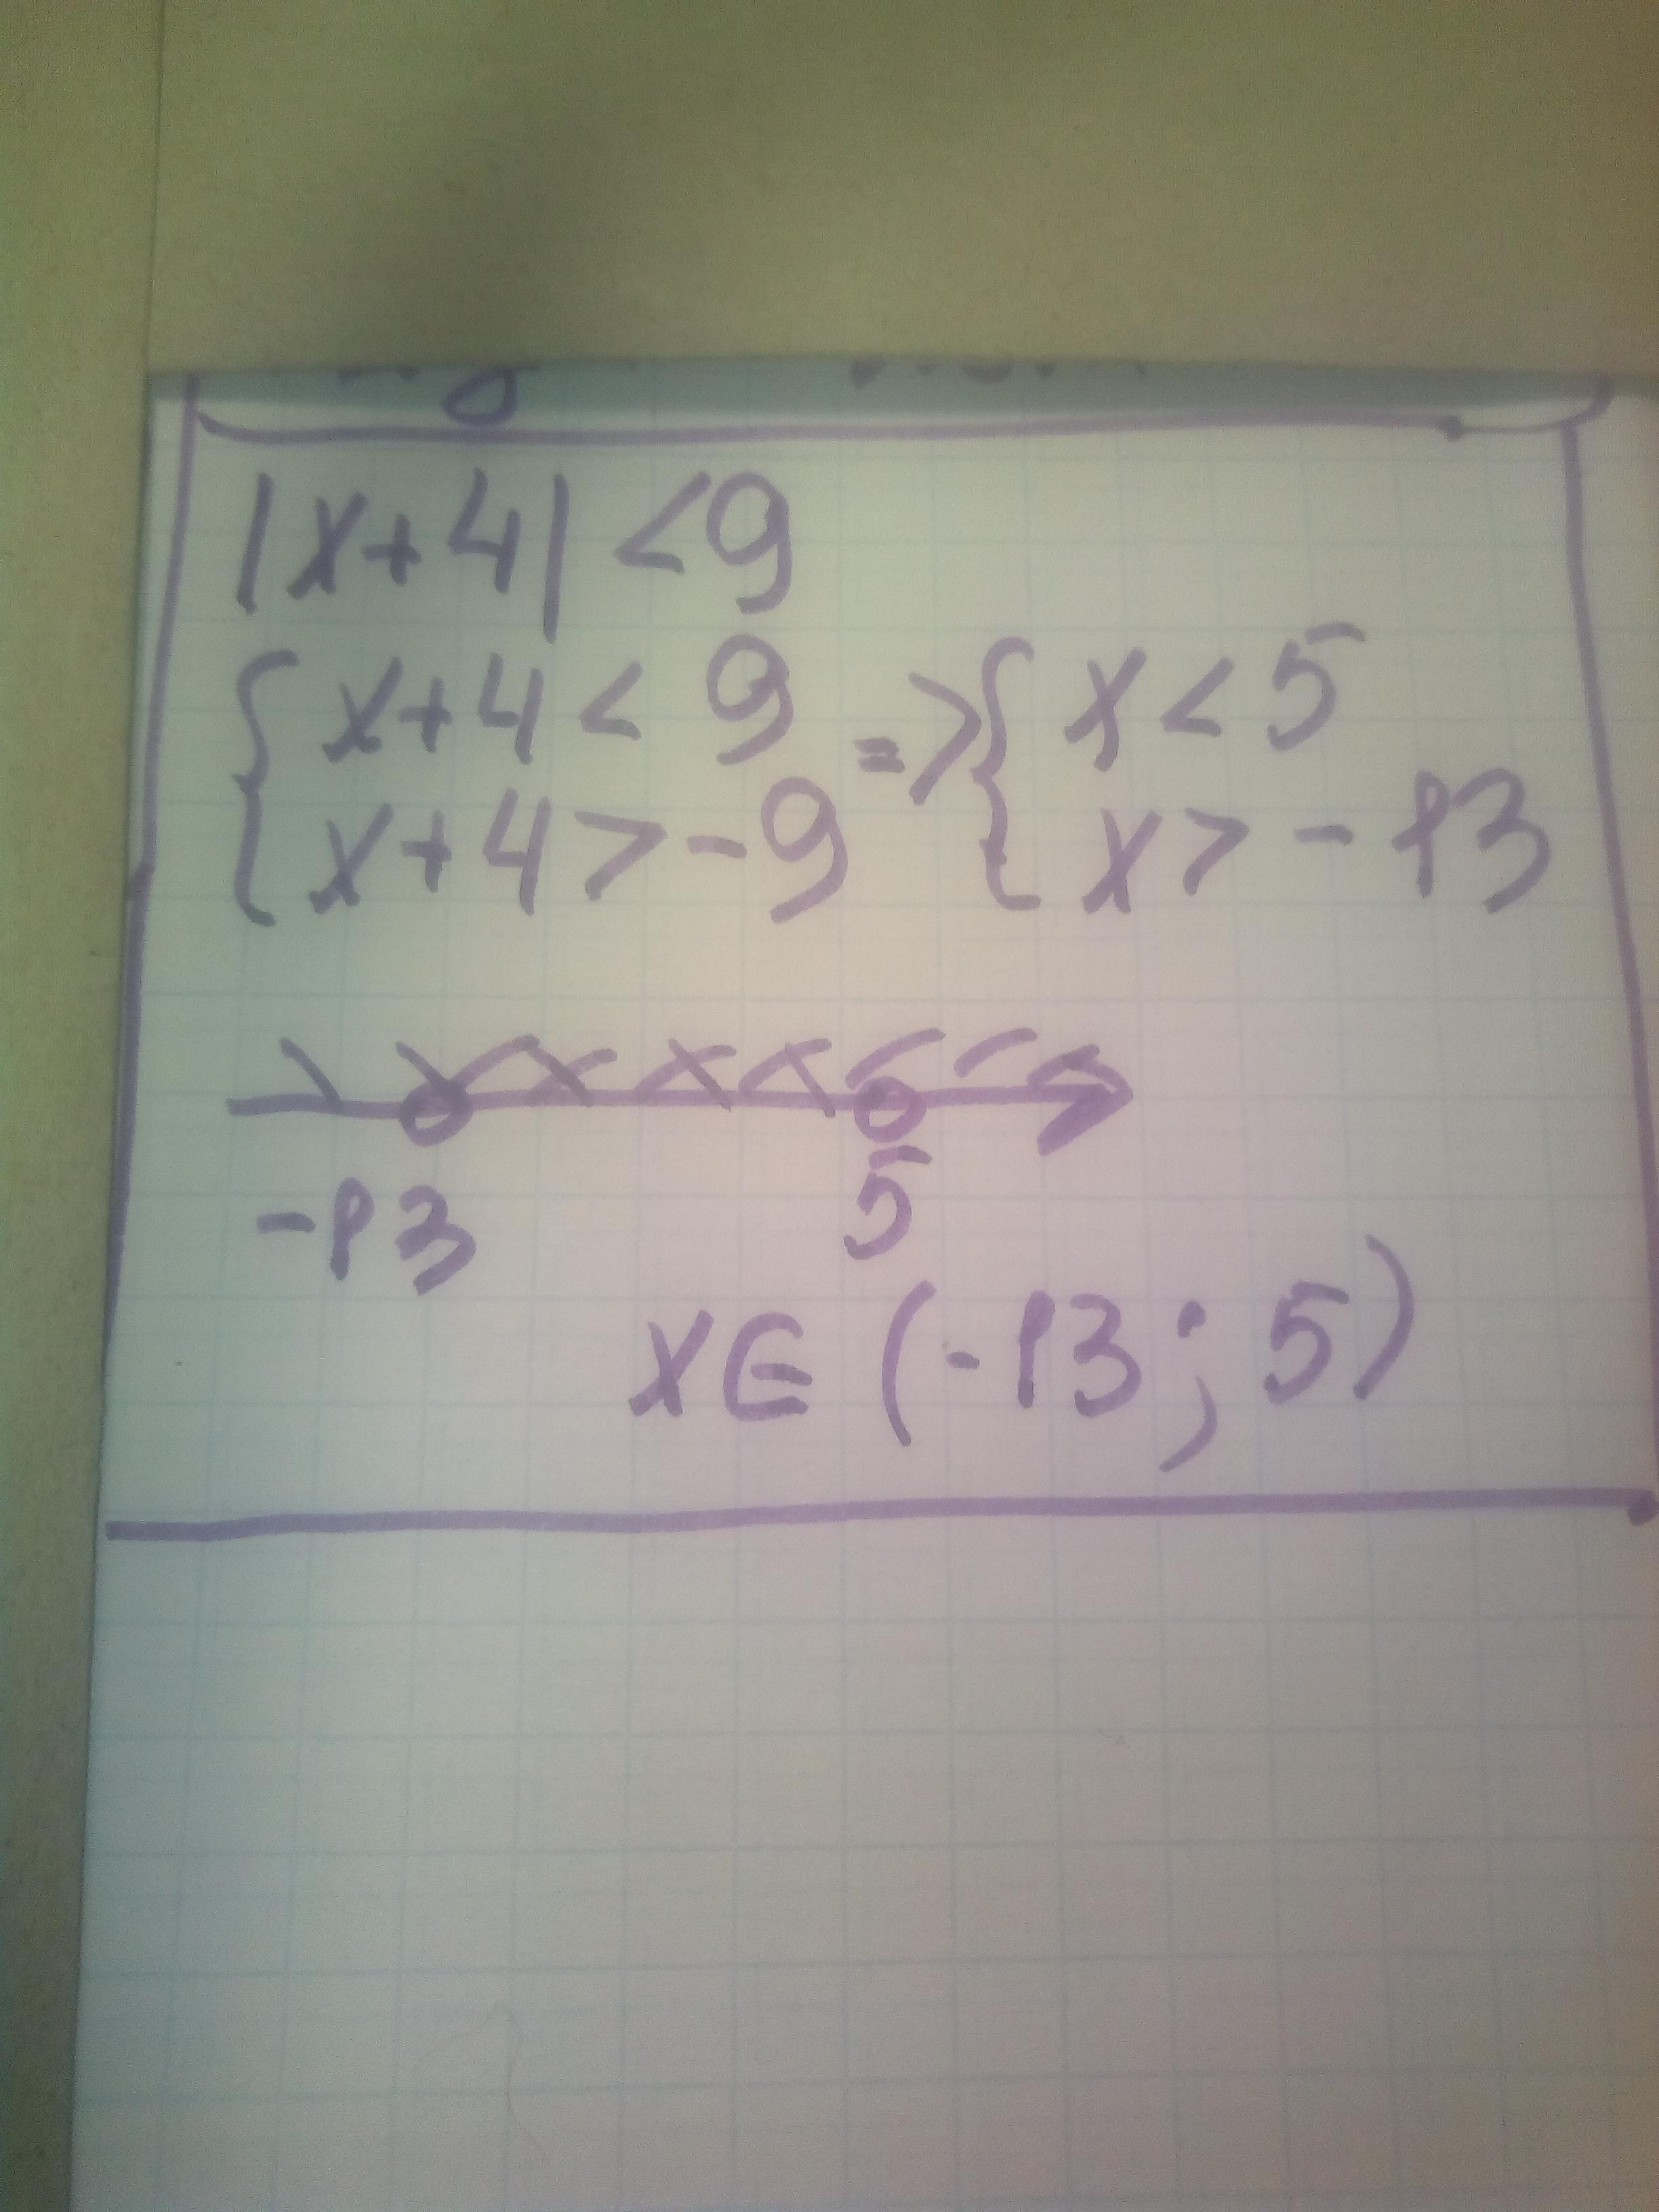 |x+4| <9
{ x+4 < 9 => { x < 5
{ x+4 > -9 { x > -13
-13 5
x∈ (-13; 5)